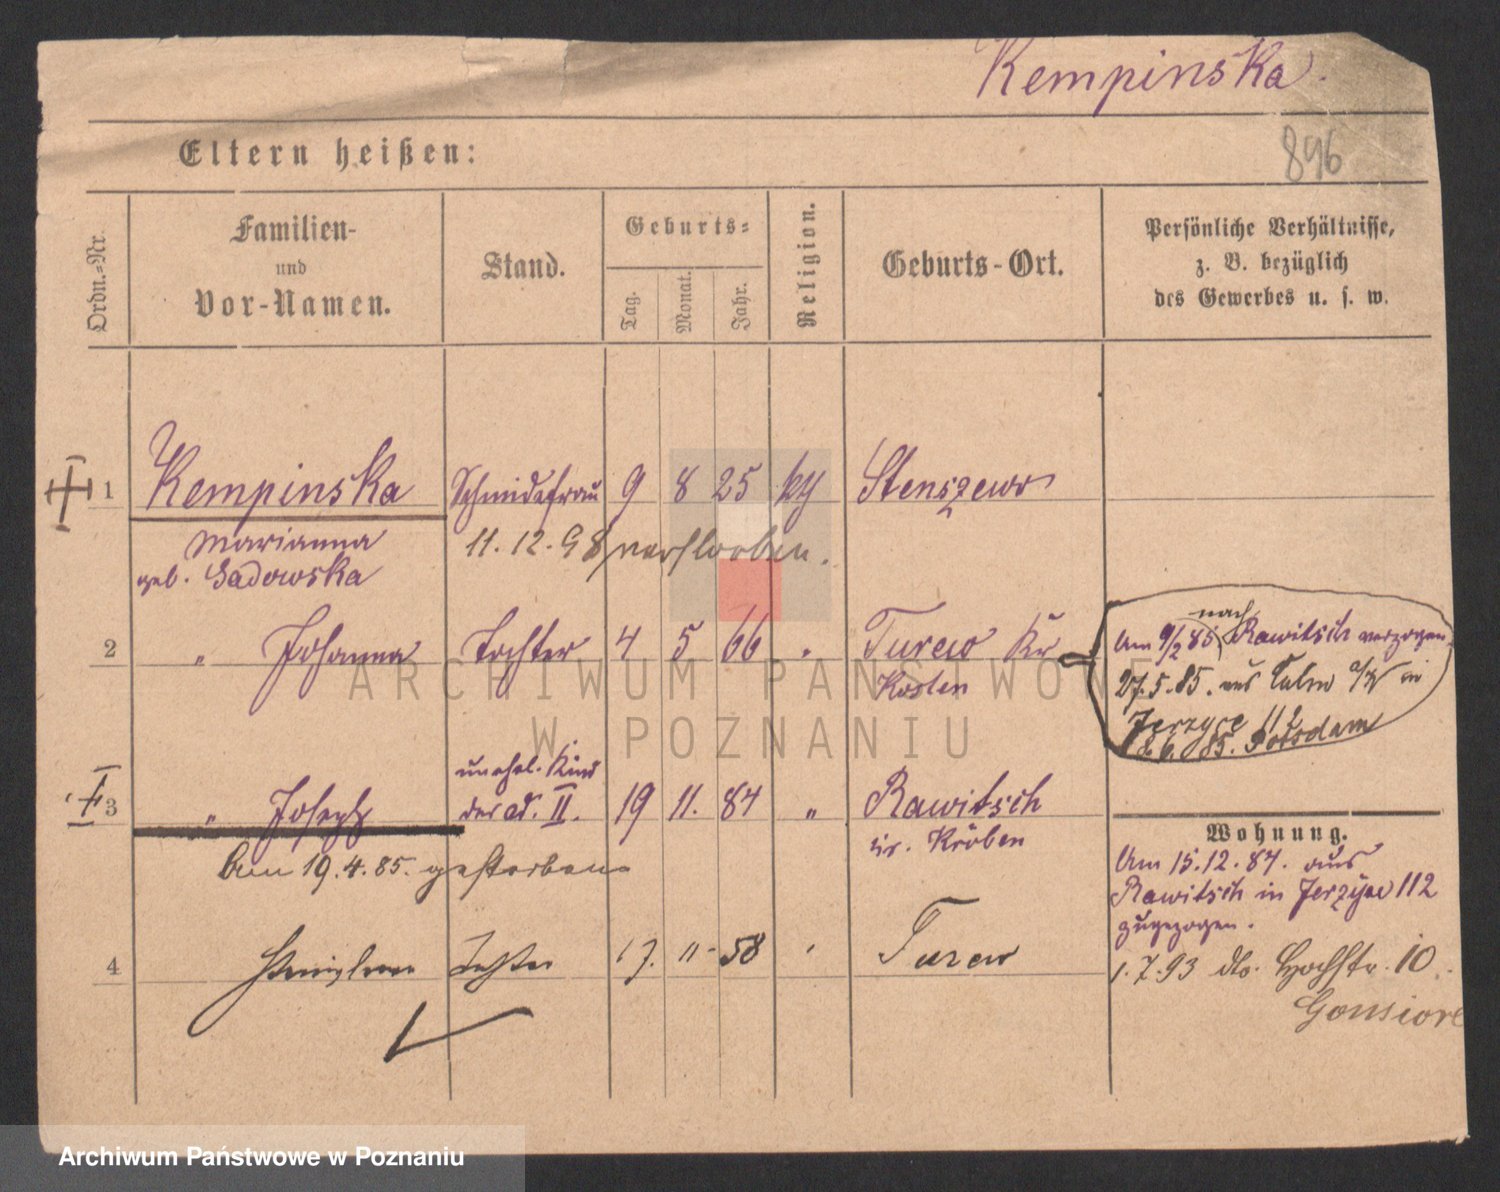 Kempinska.
896
Eltern heißen:
Ordn.=Nr.
Familien-
und
Vor-Namen.
Stand.
Geburts=
Tag.
Monat.
Jahr.
Religion.
Geburts-Ort.
Persönliche Verhältnisse,
z. B. bezüglich
des Gewerbes u. s. w.
1 Kempinska Schmidsfrau 9 8 25 Stenszewo
Marianna 11.12.98 verstorben.
geb. Sadowska
2 " Johanna Tochter 4 5 66 Turew Kr
Kosten
Am 9/2 85 nach Rawitsch verzogen
27.5.85. aus Culm in
Jerzyce 112
8.6.85. Potsdam
unehel. Kind
3 " Joseph der ad. II. 19 11. 84 " Rawitsch
Kr. Kröben
Am 19.4.85. gestorben
Wohnung.
Am 15.12.84. aus
Rawitsch in Jerzyce 112
zugezogen.
4 Tochter 17. 11. 58 Turew
1.7.93 do. Hochstr. 10
Gonsiore
ARCHIWUM PAŃSTWOWE
W POZNANIU
Archiwum Państwowe w Poznaniu